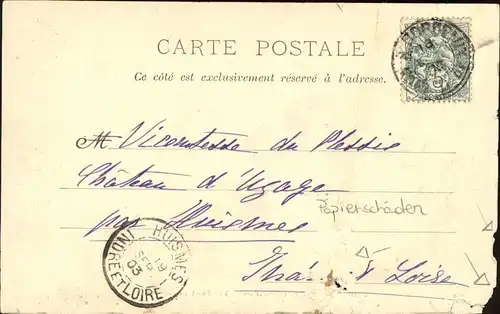 CARTE POSTALE
Ce côté est exclusivement réservé à l'adresse.
M. Vicomtesse du Plessis
Château d'Uzage
par Huismes
Papierschäden
& Loire
HUISMES
19
SEPT
03
INDRE ET LOIRE